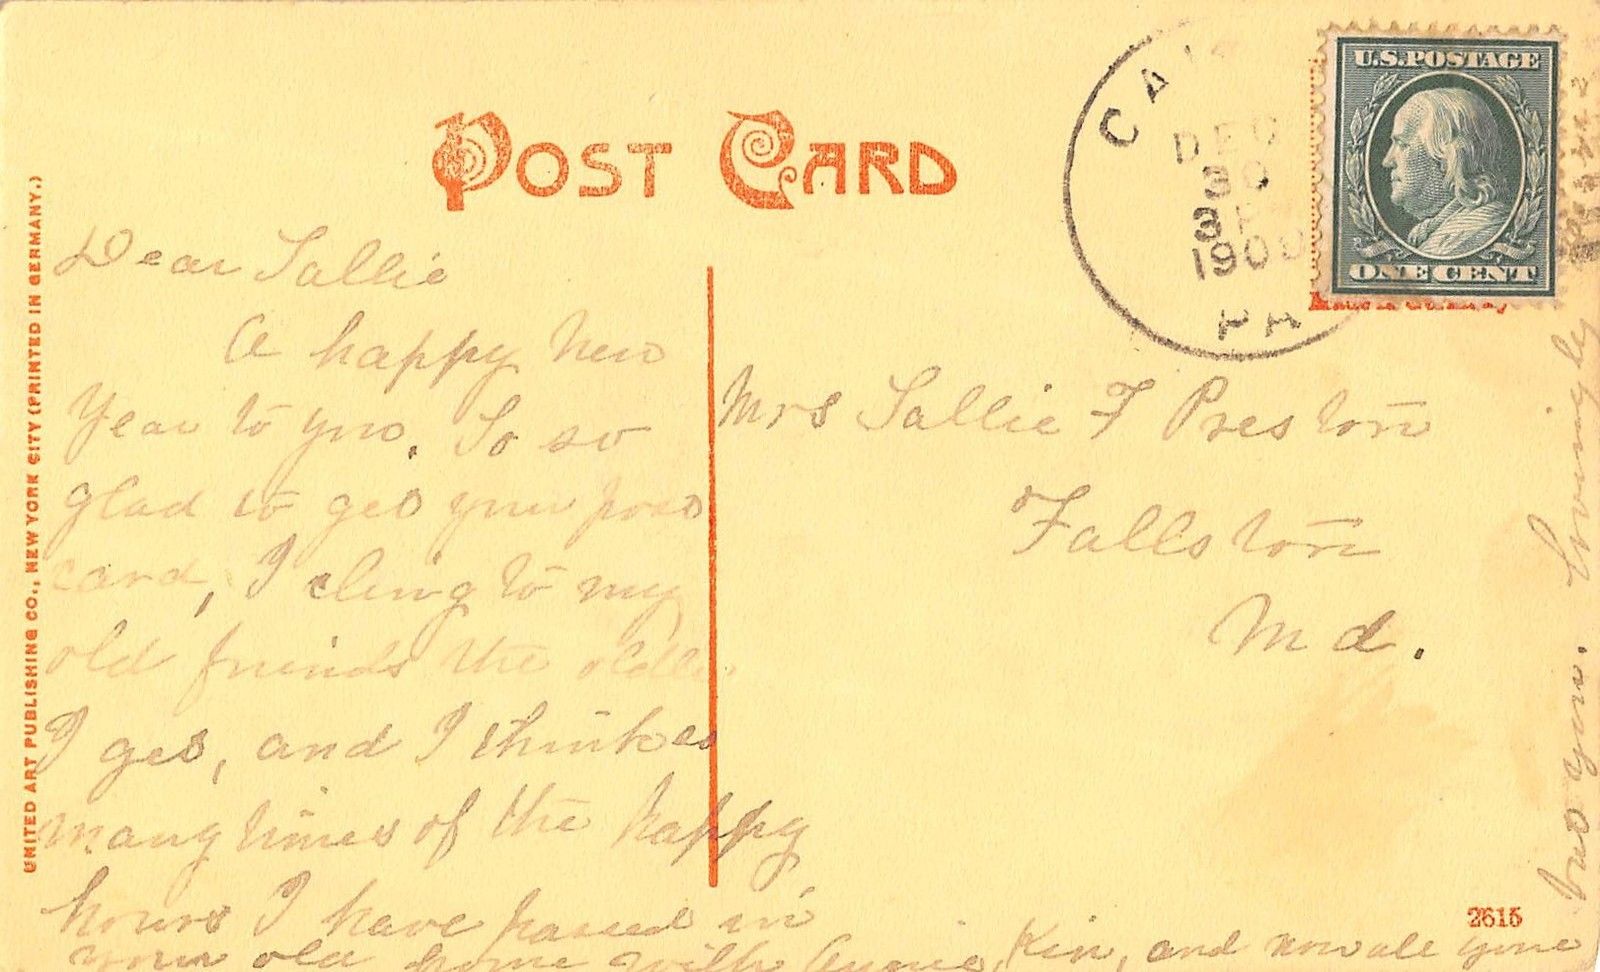 POST CARD
UNITED ART PUBLISHING CO., NEW YORK CITY (PRINTED IN GERMANY.)
U.S. POSTAGE
ONE CENT
DEC
30
190
PA
Dear Sallie
A happy New
Year to you. So so
glad to get your post
card, I cling to my
old friends the older
I get, and I think
many times of the happy
hours I have passed in
your old home with Annie, Kin, and now all gone
but you. Lovingly
Mrs Sallie F Preston
Fallston
Md.
2615